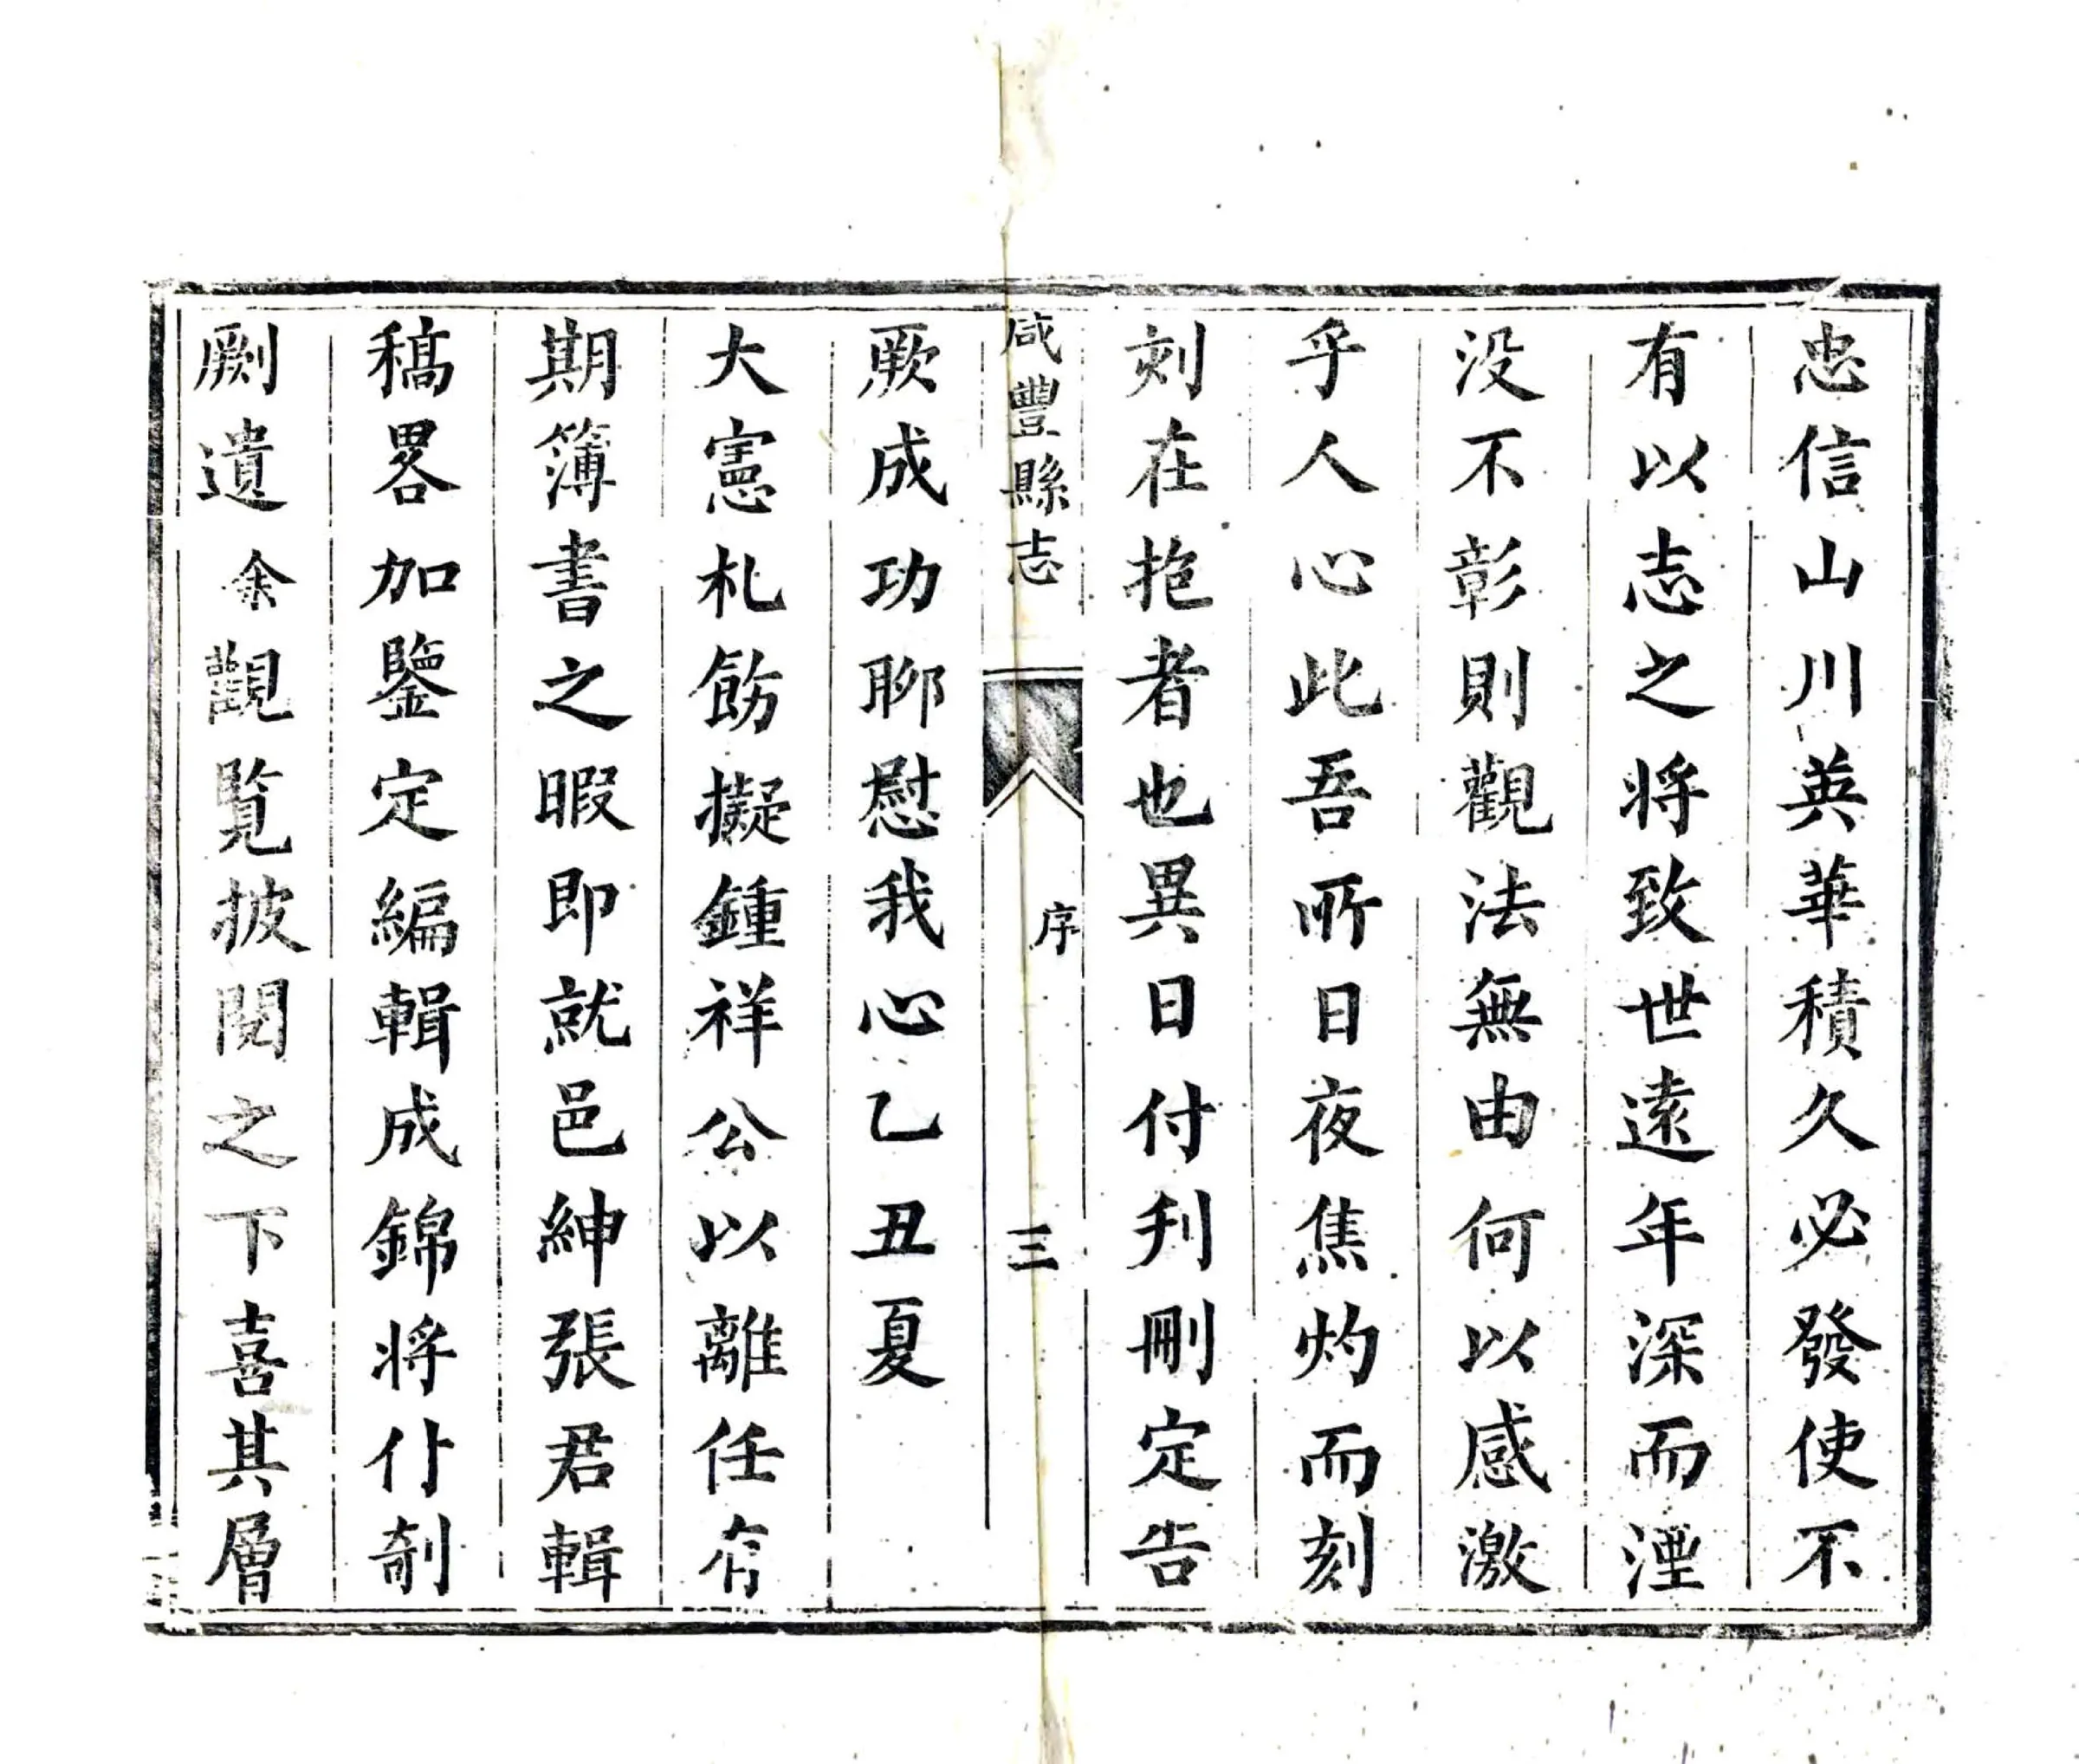 忠信山川英華積久必發使不
有以志之将致世遠年深而湮
没不彰則觀法無由何以感激
乎人心此吾所日夜焦灼而刻
刻在抱者也異日付刋刪定告
咸豐縣志
序
三
厥成功聊慰我心乙丑夏
大憲札飭擬鍾祥公以離任有
期簿書之暇即就邑紳張君輯
稿畧加鑒定編輯成錦将付剞
劂遺余觀覧披閱之下喜其層